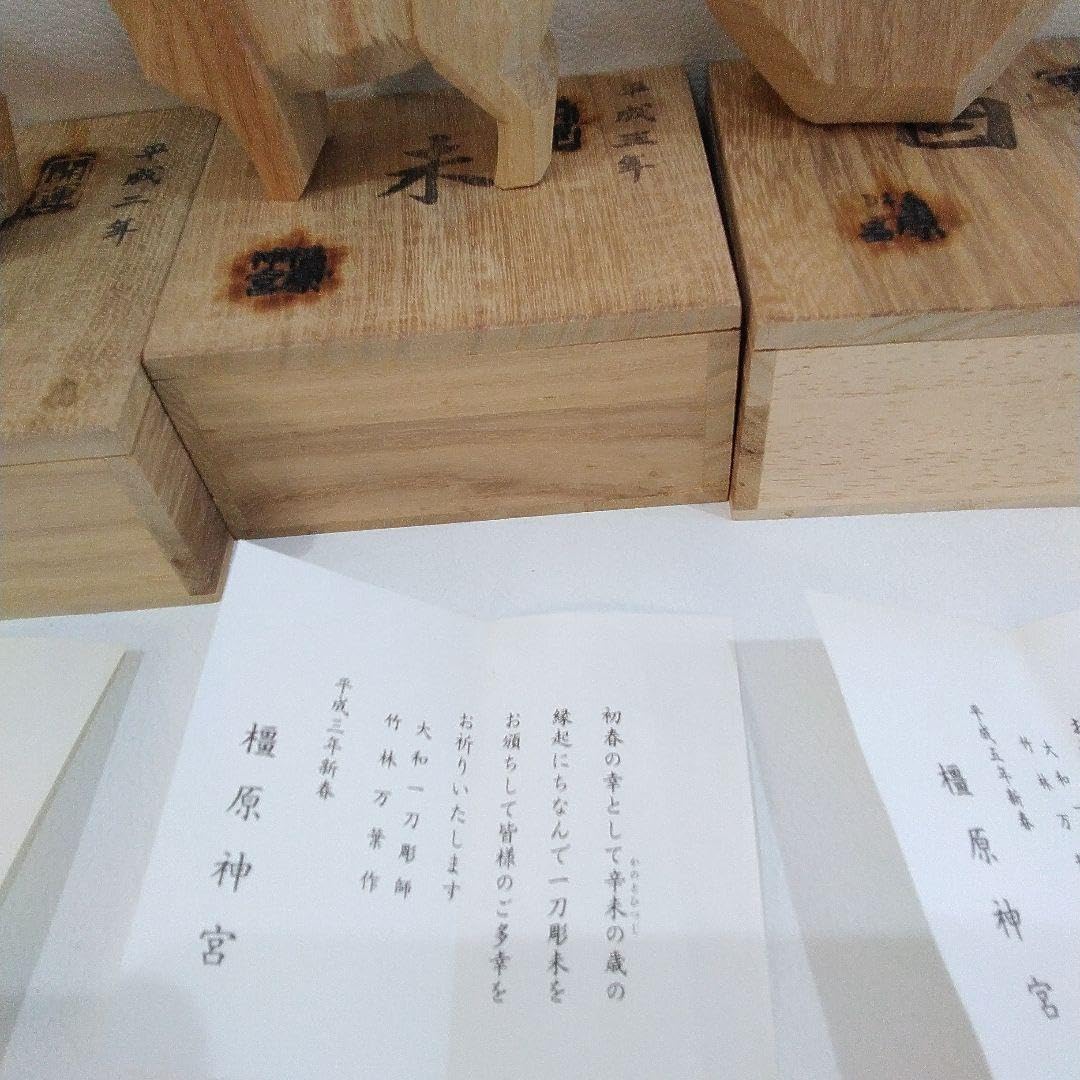 平成二年
開運
平成三年
未
初春の幸として辛未の歳の
かのとひつじ
縁起にちなんで一刀彫未を
お頒ちして皆様のご多幸を
お祈りいたします
大和一刀彫師
竹林万葉作
平成三年新春
橿原神宮
大和一
竹林万
平成五年新春
橿原神宮